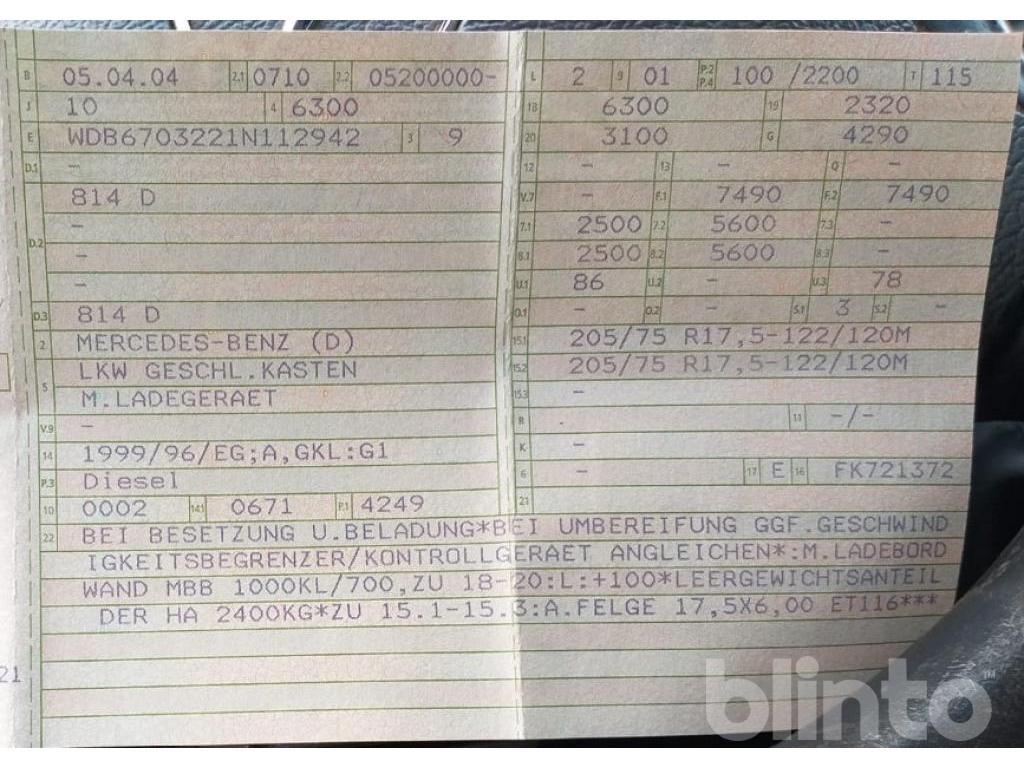 B 05.04.04 2.1 0710 2.2 05200000-
J 10 4 6300
E WDB6703221N112942 3 9
D.1 -
814 D
-
D.2
-
-
D.3 814 D
2 MERCEDES-BENZ (D)
LKW GESCHL.KASTEN
5
M.LADEGERAET
V.9 -
14 1999/96/EG;A,GKL:G1
P.3 Diesel
10 0002 14.1 0671 P.1 4249
L 2 9 01 P.2 P.4 100 /2200 T 115
18 6300 19 2320
20 3100 G 4290
12 - 13 - Q -
V.7 - F.1 7490 F.2 7490
7.1 2500 7.2 5600 7.3 -
8.1 2500 8.2 5600 8.3 -
U.1 86 U.2 - U.3 78
O.1 - O.2 - S.1 3 S.2 -
15.1 205/75 R17,5-122/120M
15.2 205/75 R17,5-122/120M
15.3 -
R . 11 -/-
K -
6 - 17 E 16 FK721372
21
22 BEI BESETZUNG U.BELADUNG*BEI UMBEREIFUNG GGF.GESCHWIND
IGKEITSBEGRENZER/KONTROLLGERAET ANGLEICHEN*:M.LADEBORD
WAND MBB 1000KL/700,ZU 18-20:L:+100*LEERGEWICHTSANTEIL
DER HA 2400KG*ZU 15.1-15.3:A.FELGE 17,5X6,00 ET116***
21
blinto™